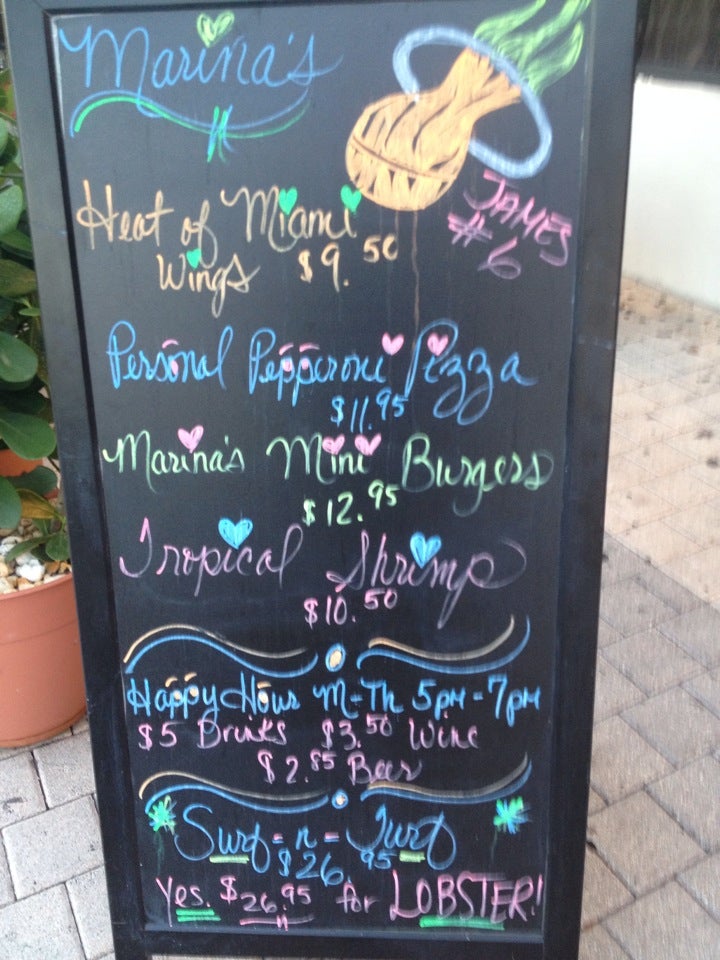 Marina's
JAMES
#6
Heat of Miami
Wings $9.50
Personal Pepperoni Pizza
$11.95
Marina's Mini Burgers
$12.95
Tropical Shrimp
$10.50
Happy Hour M-Th 5pm-7pm
$5 Drinks $3.50 Wine
$2.85 Beer
Surf-n-Turf
$26.95
Yes. $26.95 for LOBSTER!